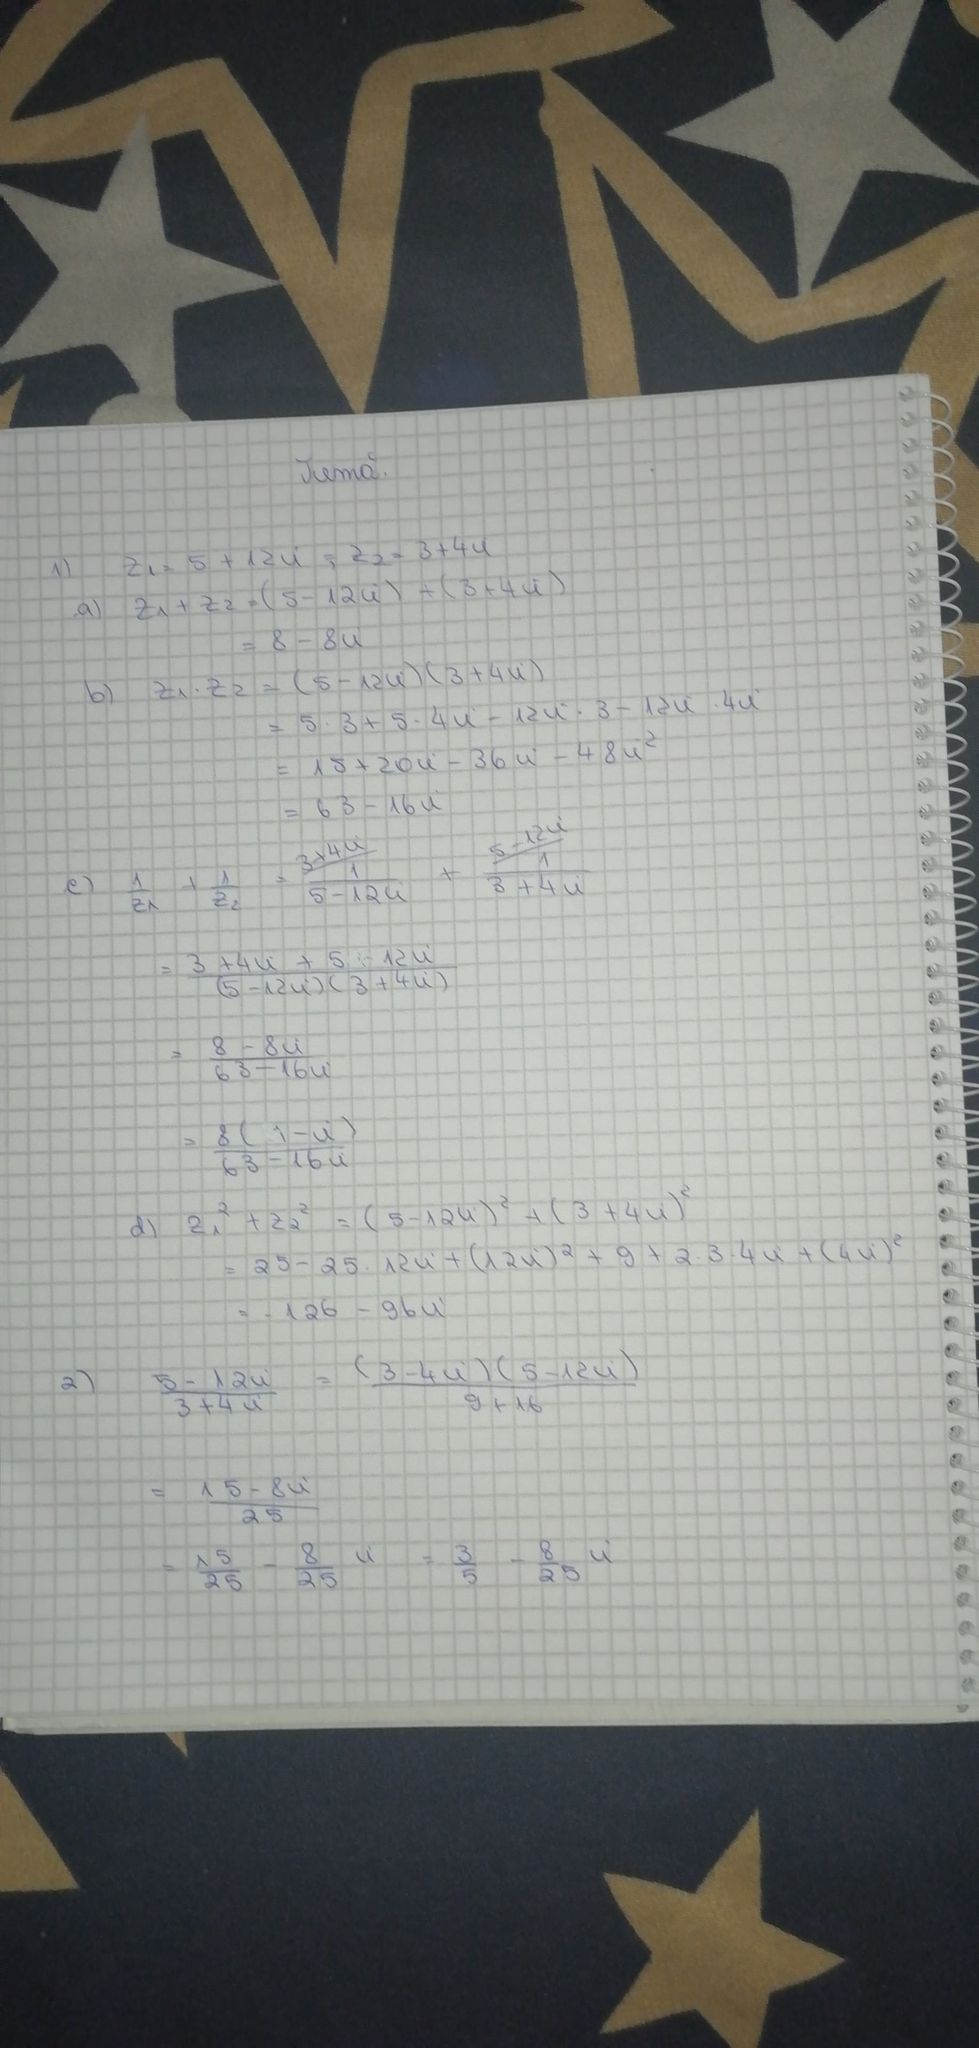 1) z₁ = 5 + 12i ; z₂ = 3+4i
a) z₁ + z₂ = (5 - 12i) + (3+4i)
= 8 - 8i
b) z₁ · z₂ = (5 - 12i)(3+4i)
= 5 · 3 + 5 · 4i - 12i · 3 - 12i · 4i
= 15 + 20i - 36i - 48i²
= 63 - 16i
c) 1/z₁ + 1/z₂ = 3+4i/ 1/(5-12i) + 5-12i/ 1/(3+4i)
= (3 + 4i + 5 - 12i)/((5-12i)(3+4i))
= (8 - 8i)/(63 - 16i)
= 8(1-i)/(63-16i)
d) z₁² + z₂² = (5-12i)² + (3+4i)²
= 25 - 25 · 12i + (12i)² + 9 + 2·3·4i + (4i)²
= -126 - 96i
2) (5-12i)/(3+4i) = (3-4i)(5-12i)/(9+16)
= (15-8i)/25
= 15/25 - 8/25 i = 3/5 - 8/25 i